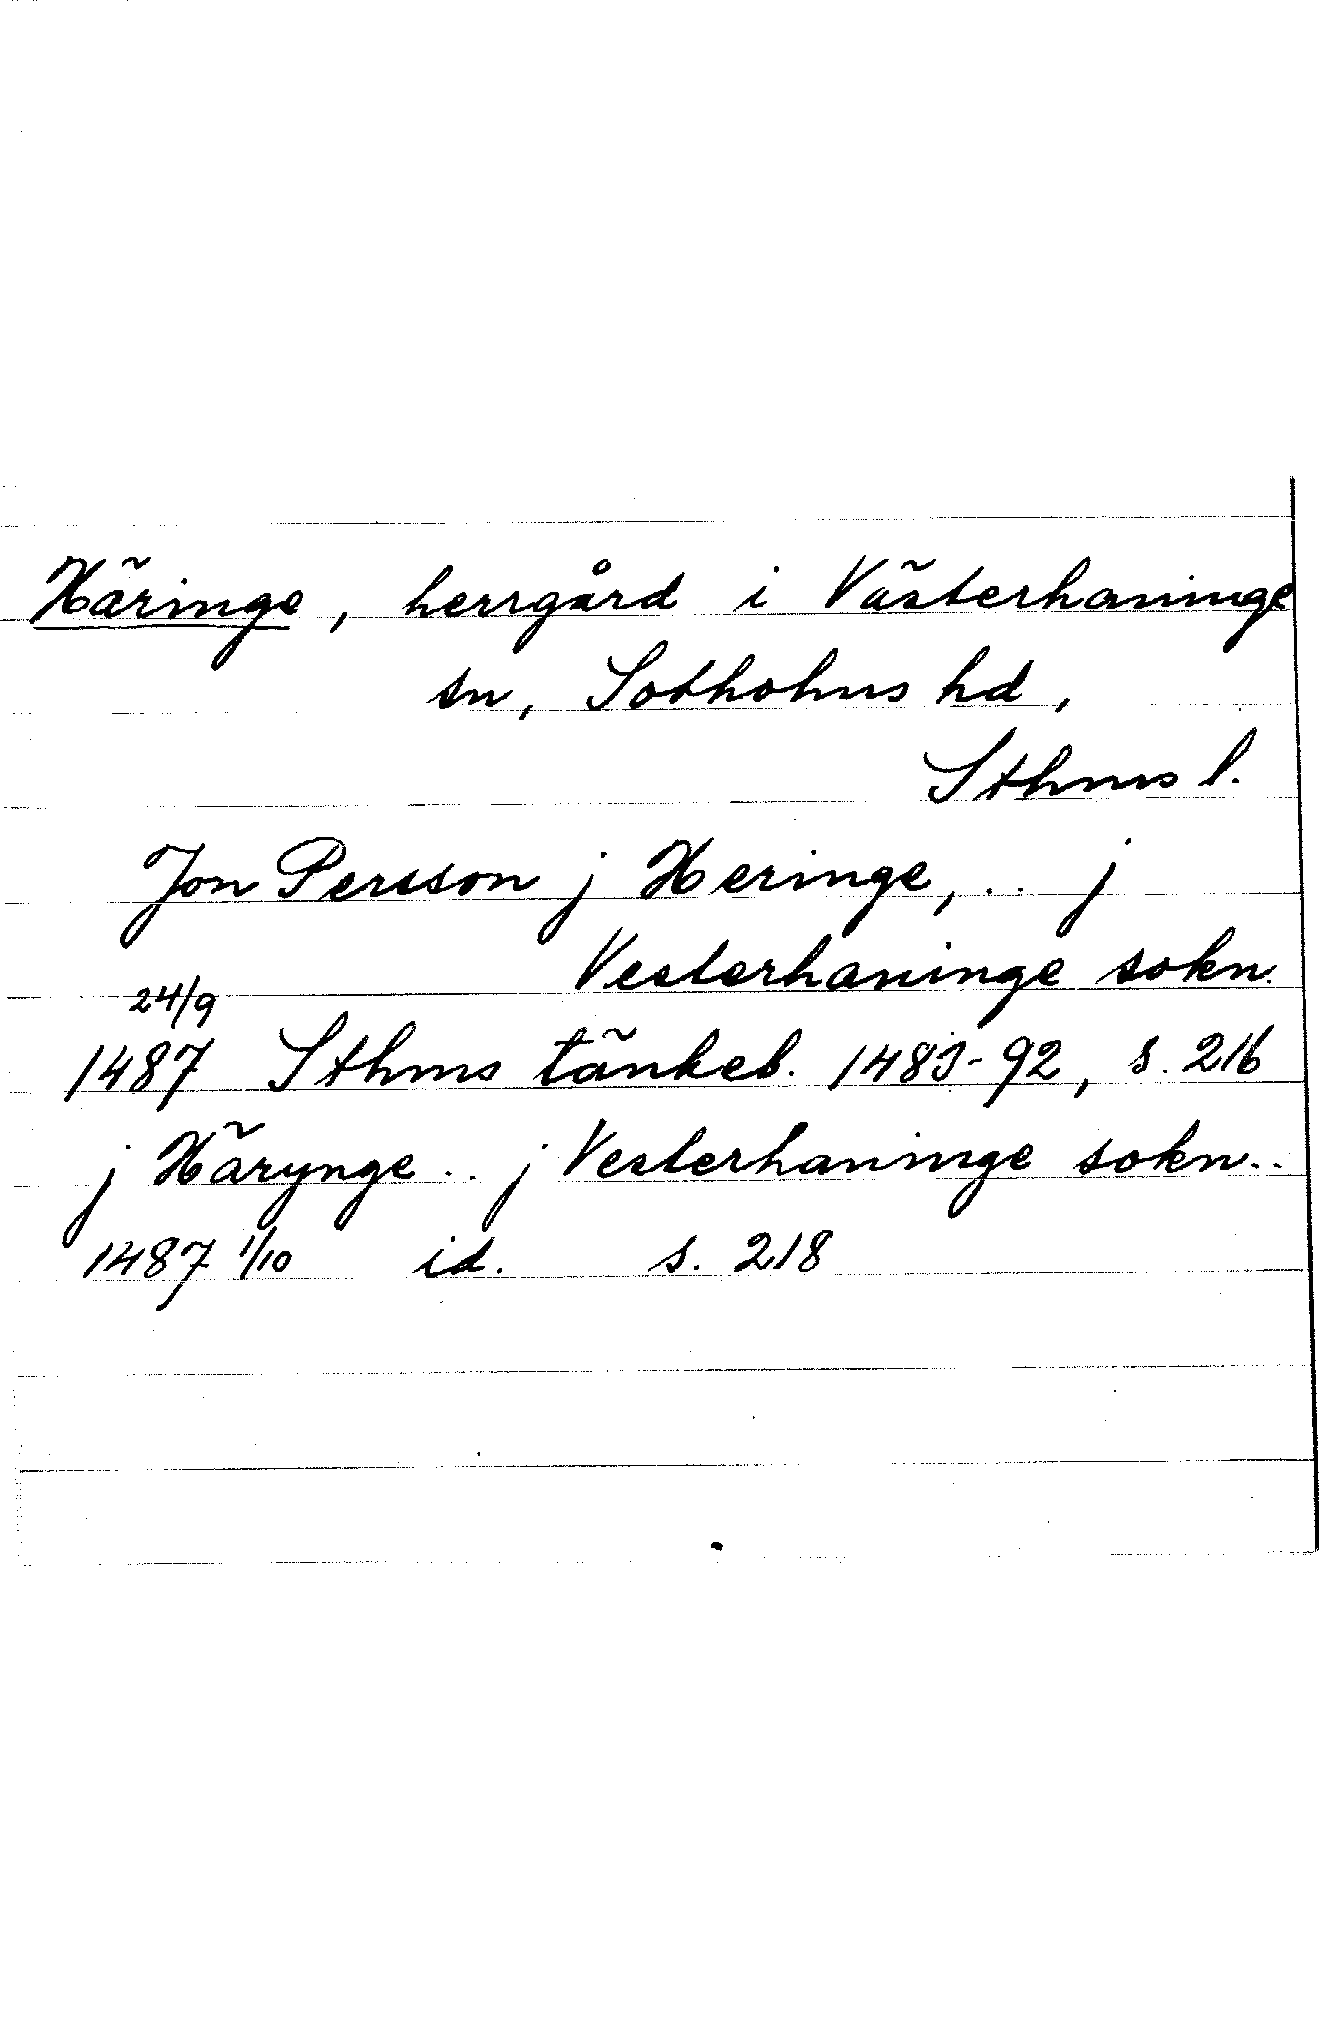 Häringe, herrgård i Västerhaninge
sn, Sotholms hd,
Sthms l.
Jon Persson j Heringe, .. j
Vesterhaninge sokn.
24/9
1487 Sthms tänkeb. 1483-92, s. 216
j Härynge .. j Vesterhaninge sokn..
1487 1/10 id. s. 218